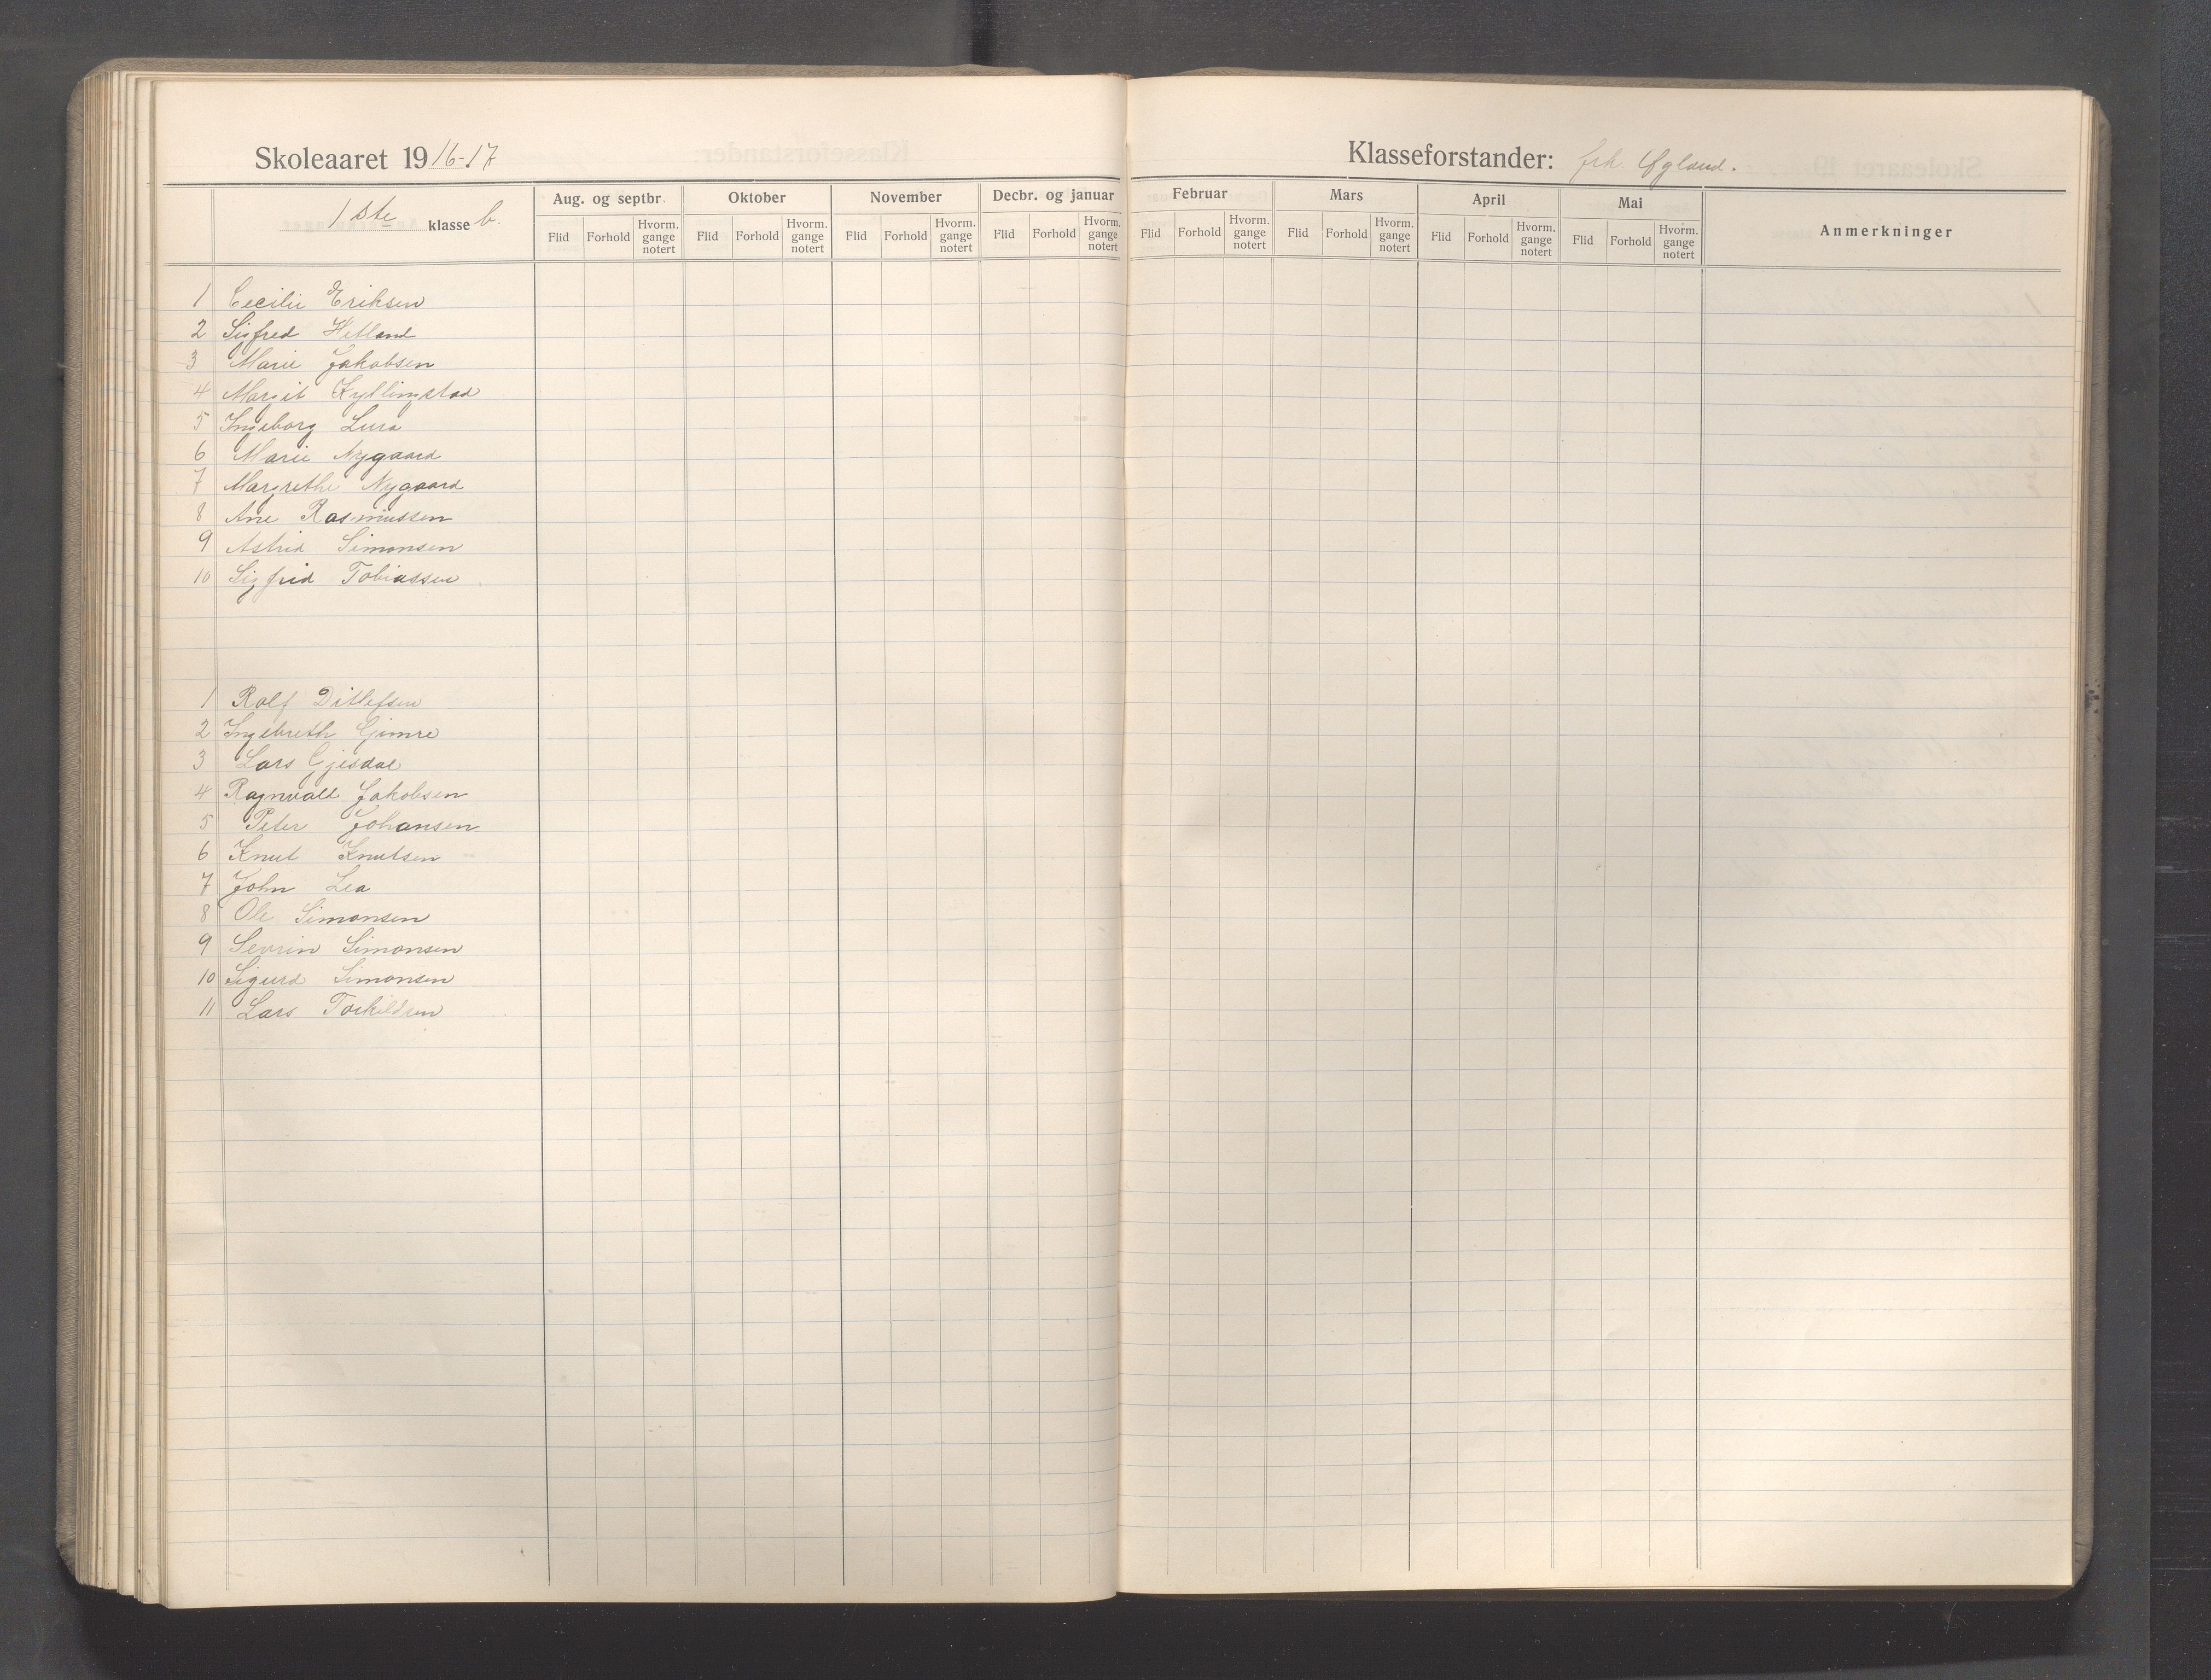 Skoleaaret 1916-17
Klasseforstander: frk. Øgland.
1ste klasse b.
Aug. og septbr. Oktober November Decbr. og januar Februar Mars April Mai Anmerkninger
Flid Forhold Hvorm. gange notert Flid Forhold Hvorm. gange notert Flid Forhold Hvorm. gange notert Flid Forhold Hvorm. gange notert Flid Forhold Hvorm. gange notert Flid Forhold Hvorm. gange notert Flid Forhold Hvorm. gange notert Flid Forhold Hvorm. gange notert
1 Cecilie Eriksen
2 Sigfred Hetland
3 Marie Jakobsen
4 Margit Kyllingstad
5 Ingeborg Lura
6 Marie Nygaard
7 Margrethe Nygaard
8 Ane Rasmussen
9 Astrid Simonsen
10 Sigfrid Tobiassen
1 Rolf Ditlefsen
2 Ingebreth Gimre
3 Lars Gjesdal
4 Ragnvald Jakobsen
5 Peter Johansen
6 Knut Knutsen
7 John Lea
8 Ole Simonsen
9 Sevrin Simonsen
10 Sigurd Simonsen
11 Lars Torkildsen